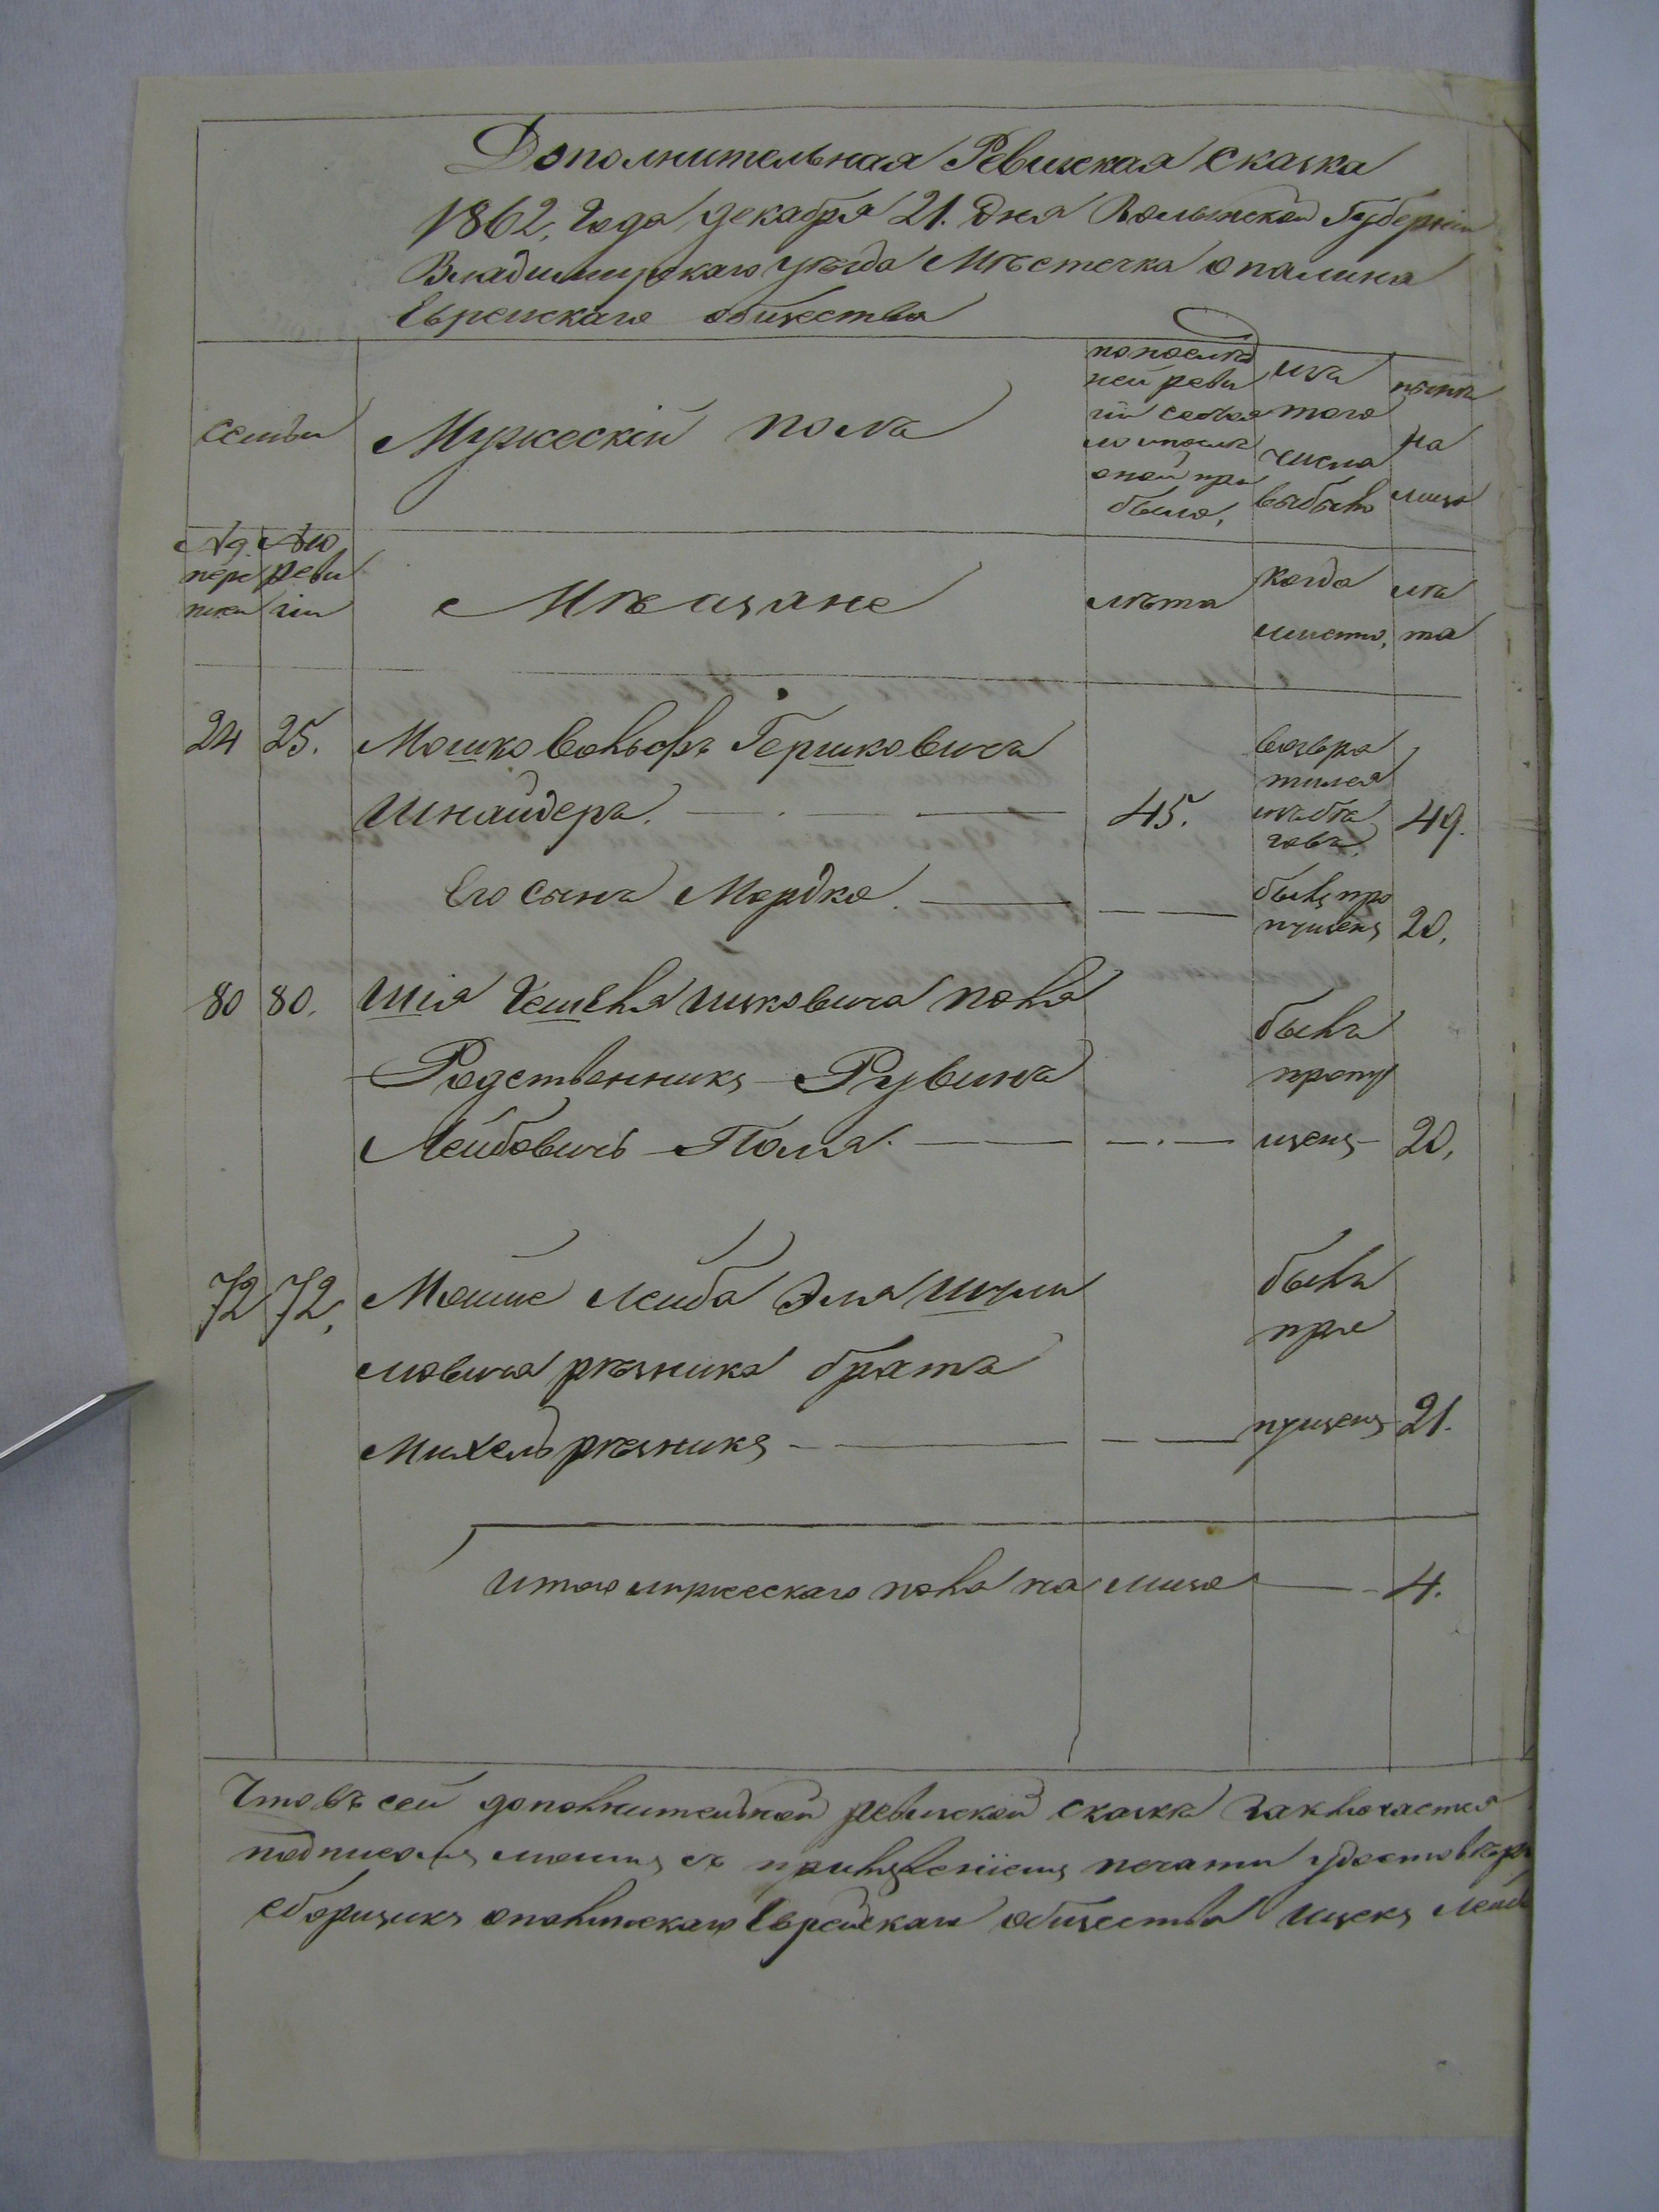 Дополнительная Ревиская сказка
1862, Года декабря 21. Дня Волынской Губернiи
Владимирскаго уѣзда Мѣстечка опалина
Еврейскаго общества
семьи
Мужескiй полъ
по послѣд
ней реви
зiи состоя
ло и послѣ
оной при
было,
изъ
того
числа
выбыло
нынѣ
на
лицо
№ д.
пере
писи
№ по
реви
зiи
Мѣщане
лѣта
когда
имянно,
лѣ
та
24 25. Мошко Вольфъ Гершковичъ
Шнайдеръ. 45. 49.
возвра
тился
изъ бѣ
говъ
Его сынъ Мордко.
былъ про
пущенъ 20.
80 80. Шiя Иосиковича Пола
Родственникъ Рувинъ
Лейбовичъ Полъ.
былъ
пропу
щенъ 20,
72 72, Мошие Лейба Эля Шлiи
мовича рѣзника братъ
Михель рѣзникъ
былъ
про
пущенъ 21.
Итого мужескаго пола на лицо 4.
Что въ сей дополнительной ревиской сказкѣ заключается
подписомъ моимъ съ приложенiемъ печати удостовѣря
сборщикъ опалинскаго Еврейскаго общества Ицекъ Лейб